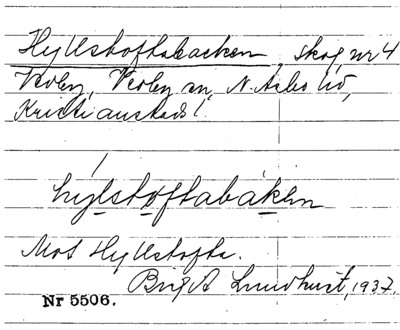 Hyllstoftabacken, skog, nr 4
Verby, Verby sn, N. Åsbo hd,
Kristianstads l.
hýlstoftabàken
Mot Hyllstofta.
Birgit Lundhurst, 1937.
Nr 5506.